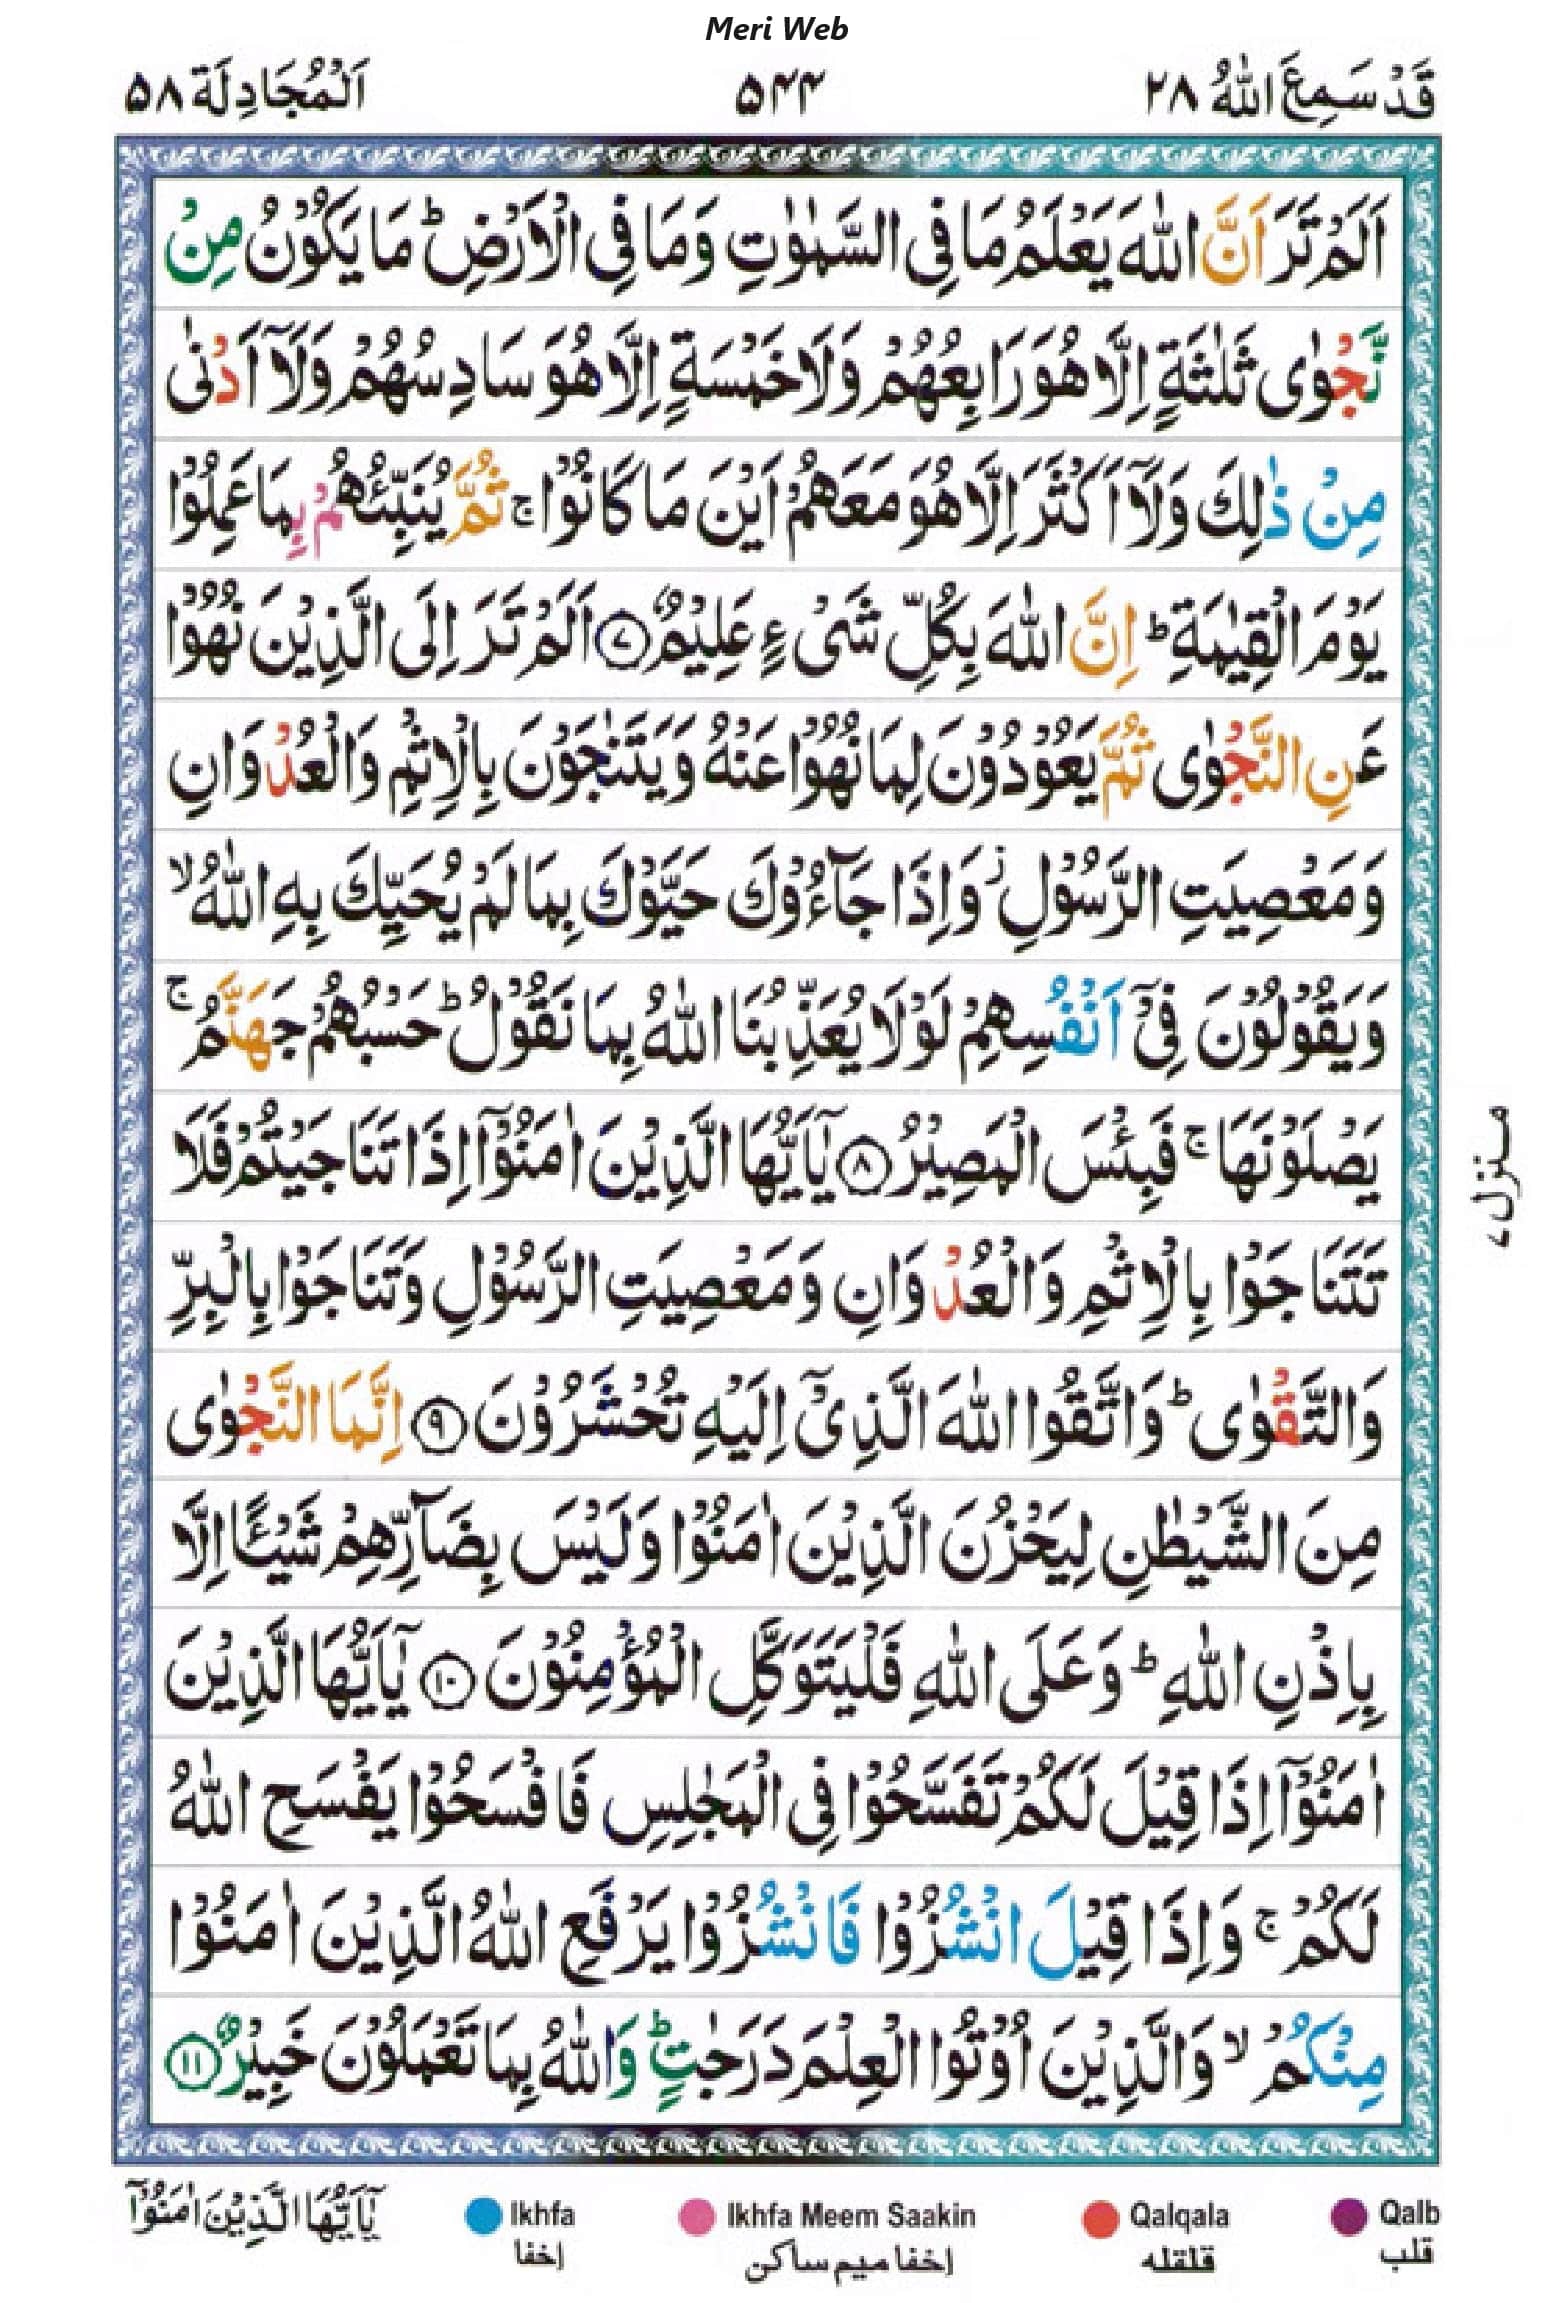 Meri Web
قَدْ سَمِعَ اللّٰهُ ۲۸ ۵۴۴ اَلْمُجَادِلَة ۵۸
اَلَمْ تَرَ اَنَّ اللّٰهَ يَعْلَمُ مَا فِى السَّمٰوٰتِ وَمَا فِى الْاَرْضِ ؕ مَا يَكُوْنُ مِنْ
نَّجْوٰى ثَلٰثَةٍ اِلَّا هُوَ رَابِعُهُمْ وَلَا خَمْسَةٍ اِلَّا هُوَ سَادِسُهُمْ وَلَاۤ اَدْنٰى
مِنْ ذٰلِكَ وَلَاۤ اَكْثَرَ اِلَّا هُوَ مَعَهُمْ اَيْنَ مَا كَانُوْا ۚ ثُمَّ يُنَبِّئُهُمْ بِمَا عَمِلُوْا
يَوْمَ الْقِيٰمَةِ ؕ اِنَّ اللّٰهَ بِكُلِّ شَىْءٍ عَلِيْمٌ ۷ اَلَمْ تَرَ اِلَى الَّذِيْنَ نُهُوْا
عَنِ النَّجْوٰى ثُمَّ يَعُوْدُوْنَ لِمَا نُهُوْا عَنْهُ وَيَتَنٰجَوْنَ بِالْاِثْمِ وَالْعُدْوَانِ
وَمَعْصِيَتِ الرَّسُوْلِ ز وَاِذَا جَآءُوْكَ حَيَّوْكَ بِمَا لَمْ يُحَيِّكَ بِهِ اللّٰهُ ۙ
وَيَقُوْلُوْنَ فِىْۤ اَنْفُسِهِمْ لَوْلَا يُعَذِّبُنَا اللّٰهُ بِمَا نَقُوْلُ ؕ حَسْبُهُمْ جَهَنَّمُ ۚ
يَصْلَوْنَهَا ۚ فَبِئْسَ الْمَصِيْرُ ۸ يٰۤاَيُّهَا الَّذِيْنَ اٰمَنُوْۤا اِذَا تَنَاجَيْتُمْ فَلَا
تَتَنَاجَوْا بِالْاِثْمِ وَالْعُدْوَانِ وَمَعْصِيَتِ الرَّسُوْلِ وَتَنَاجَوْا بِالْبِرِّ
وَالتَّقْوٰى ؕ وَاتَّقُوا اللّٰهَ الَّذِىْۤ اِلَيْهِ تُحْشَرُوْنَ ۹ اِنَّمَا النَّجْوٰى
مِنَ الشَّيْطٰنِ لِيَحْزُنَ الَّذِيْنَ اٰمَنُوْا وَلَيْسَ بِضَآرِّهِمْ شَيْئًا اِلَّا
بِاِذْنِ اللّٰهِ ؕ وَعَلَى اللّٰهِ فَلْيَتَوَكَّلِ الْمُؤْمِنُوْنَ ۱۰ يٰۤاَيُّهَا الَّذِيْنَ
اٰمَنُوْۤا اِذَا قِيْلَ لَكُمْ تَفَسَّحُوْا فِى الْمَجٰلِسِ فَافْسَحُوْا يَفْسَحِ اللّٰهُ
لَكُمْ ۚ وَاِذَا قِيْلَ انْشُزُوْا فَانْشُزُوْا يَرْفَعِ اللّٰهُ الَّذِيْنَ اٰمَنُوْا
مِنْكُمْ ۙ وَالَّذِيْنَ اُوْتُوا الْعِلْمَ دَرَجٰتٍ ؕ وَاللّٰهُ بِمَا تَعْمَلُوْنَ خَبِيْرٌ ۱۱
منزل ۷
يٰۤاَيُّهَا الَّذِيْنَ اٰمَنُوْۤا
Ikhfa Ikhfa Meem Saakin Qalqala Qalb
إخفا إخفا ميم ساكن قلقله قلب